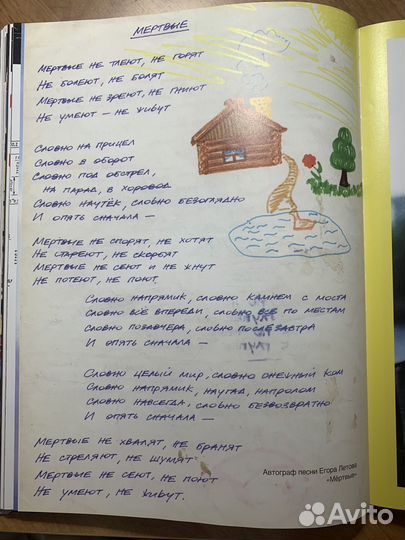 МЕРТВЫЕ
МЕРТВЫЕ НЕ ТЛЕЮТ, НЕ ГОРЯТ
НЕ БОЛЕЮТ, НЕ БОЛЯТ
МЕРТВЫЕ НЕ ЗРЕЮТ, НЕ ГНИЮТ
НЕ УМЕЮТ — НЕ ЖИВУТ
СЛОВНО НА ПРИЦЕЛ
СЛОВНО В ОБОРОТ
СЛОВНО ПОД ОБСТРЕЛ,
НА ПАРАД, В ХОРОВОД
СЛОВНО НАУТЁК, СЛОВНО БЕЗОГЛЯДНО
И ОПЯТЬ СНАЧАЛА —
МЕРТВЫЕ НЕ СПОРЯТ, НЕ ХОТЯТ
НЕ СТАРЕЮТ, НЕ СКОРБЯТ
МЕРТВЫЕ НЕ СЕЮТ И НЕ ЖНУТ
НЕ ПОТЕЮТ, НЕ ПОЮТ.
СЛОВНО НАПРЯМИК, СЛОВНО КАМНЕМ С МОСТА
СЛОВНО ВСЁ ВПЕРЕДИ, СЛОВНО ВСЕ ПО МЕСТАМ
СЛОВНО ПОЗАВЧЕРА, СЛОВНО ПОСЛЕЗАВТРА
И ОПЯТЬ СНАЧАЛА —
СЛОВНО ЦЕЛЫЙ МИР, СЛОВНО СНЕЖНЫЙ КОМ
СЛОВНО НАПРЯМИК, НАУГАД, НАПРОЛОМ
СЛОВНО НАВСЕГДА, СЛОВНО БЕЗВОЗВРАТНО
И ОПЯТЬ СНАЧАЛА —
МЕРТВЫЕ НЕ ХВАЛЯТ, НЕ БРАНЯТ
НЕ СТРЕЛЯЮТ, НЕ ШУМЯТ
МЕРТВЫЕ НЕ СЕЮТ, НЕ ПОЮТ
НЕ УМЕЮТ, НЕ ЖИВУТ.
Автограф песни Егора Летова
«Мёртвые»
Avito